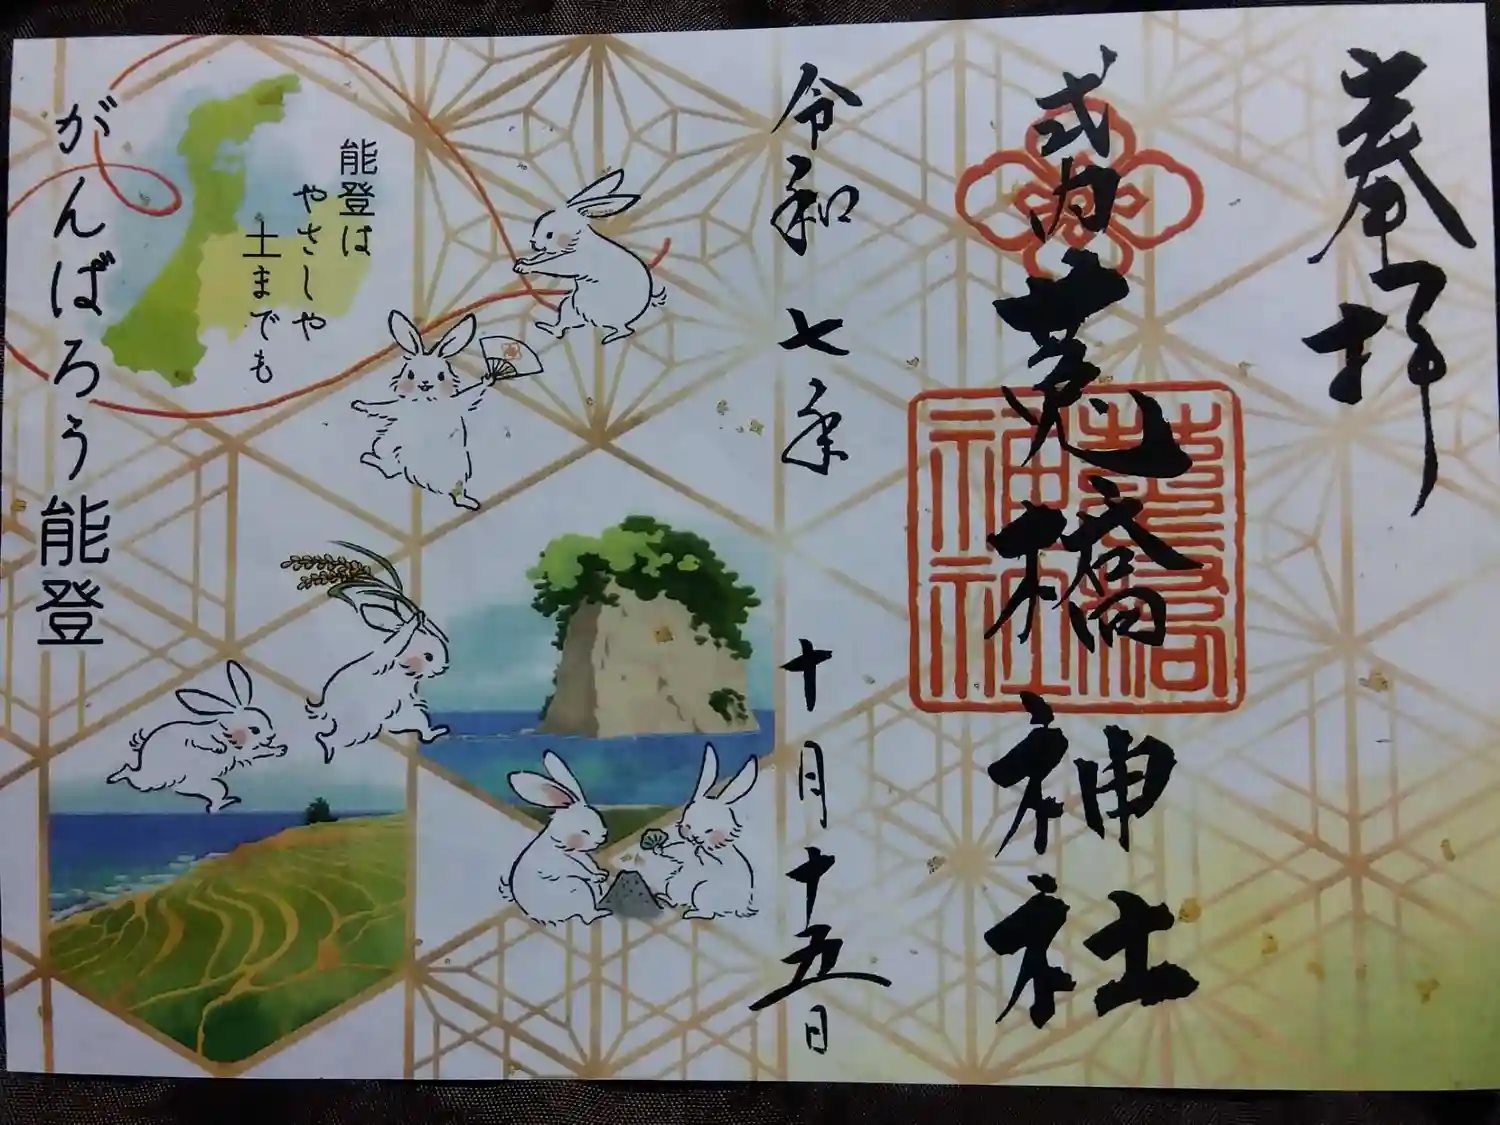 奉拝
式内 菟橋神社
菟橋
神社
令和七年 十月十五日
能登は
やさしや
土までも
がんばろう能登